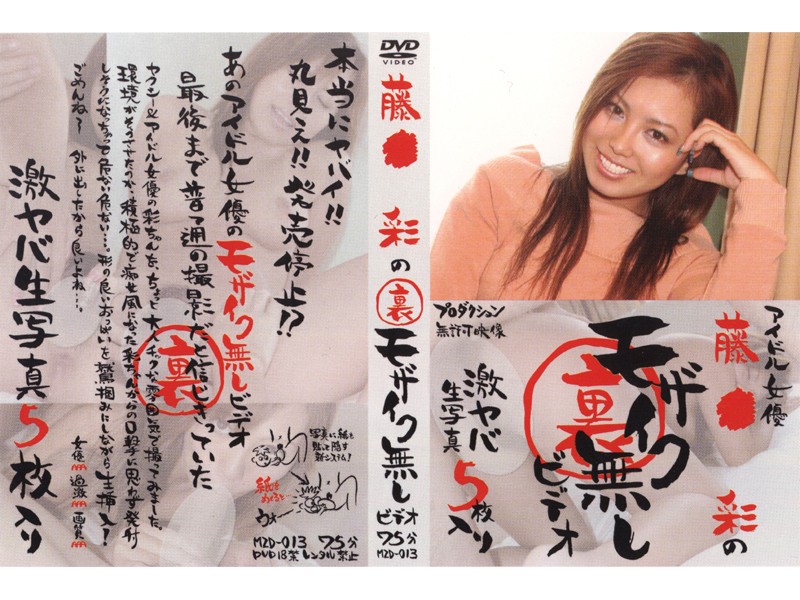 本当にヤバイ!!
丸見え!!発売停止!?
あのアイドル女優のモザイク無しビデオ
最後まで普通の撮影だと信じきっていた
裏
ヤクシー&アイドル女優の彩ちゃんを、ちょっと大人チックな雰囲気で撮ってみました。
環境がそうさせたのか、積極的で痴女風になった彩ちゃんからの口撃に思わず発射
しそうになっちゃって危ない危ない…。形の良いおっぱいを鷲掴みにしながら生挿入!
ごめんね〜 外に出したから良いよね…。
激ヤバ生写真5枚入り
女優AAA 過激AAA 画質AAA
写真に紙を
貼って隠す
新システム!
紙を
めくると
ウォー
MZD-013 75分
DVD 18禁 レンタル禁止
DVD
VIDEO
藤● 彩の裏モザイク無しビデオ
75分
MZD-013
プロダクション
無許可映像
アイドル女優
藤● 彩の
裏
モザイク無し
ビデオ
激ヤバ
生写真
5枚
入り